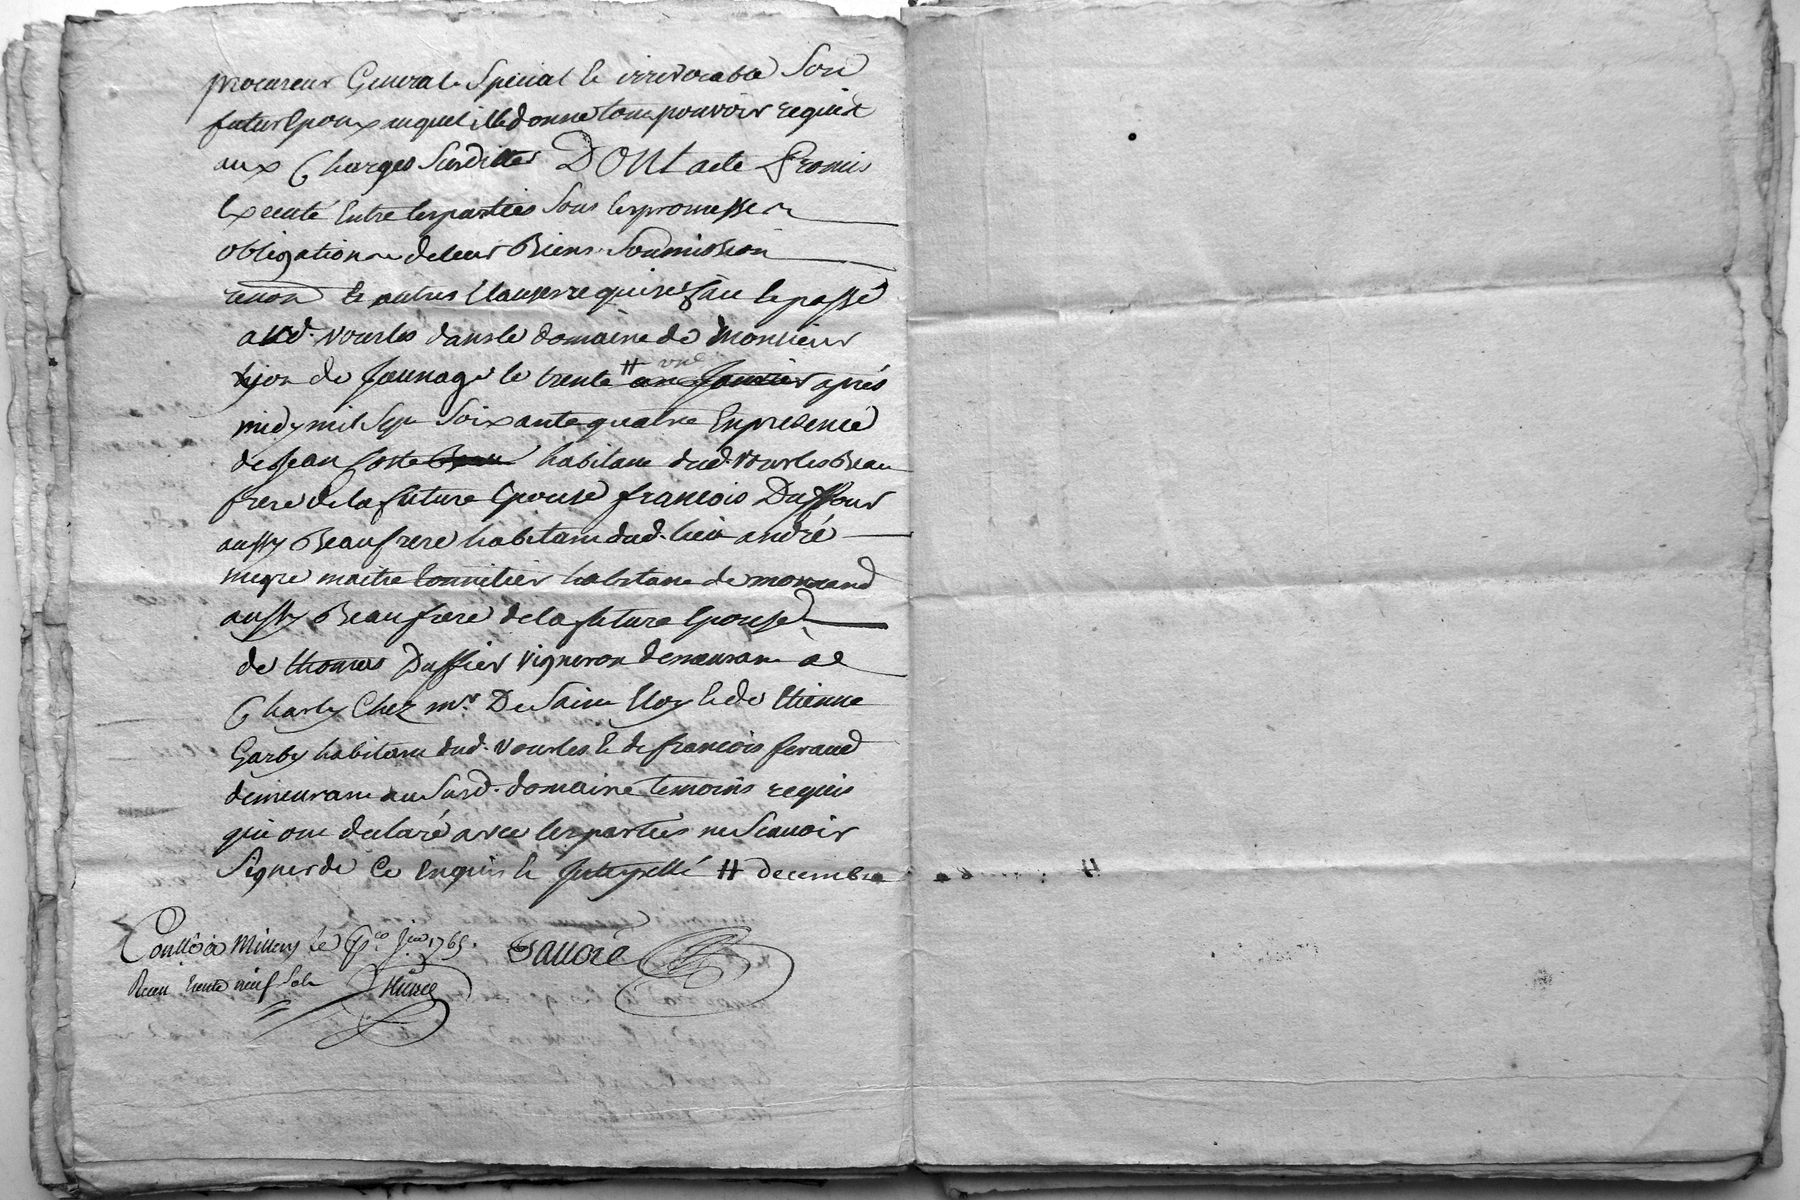 procureur General Special & irrevocable Son
futur Epoux auquel elle donne tout pouvoir requis
aux Charges Susdittes DONt acte Promis
Executé Entre les parties Sous les promesses
obligation de leur Biens Soumission
renon & autres Clauses requises fait & passé
aud. vourles dans le domaine de Monsieur
de Jaunage le trente H après
midy mil Sept Soixante quatre En presence
de Jean Coste habitant dud. vourles Beau
frere de la future Epouse francois Duffour
aussy Beaufrere habitant dud. lieu andré
megre maitre habitant de mornand
aussy Beaufrere de la future Epouse
de thomas Duffier vigneron demeurant a
Charly Chez mr. De Saint Eloy & de Etienne
Garby habitant dud. vourles & de francois feraud
demeurant au Susd. domaine temoins requis
qui ont declaré avec les parties ne Scavoir
Signer de Ce Enquis & Interpellé H decembre
Conllé a Millery le 1765.
Recu trente neuf Sols